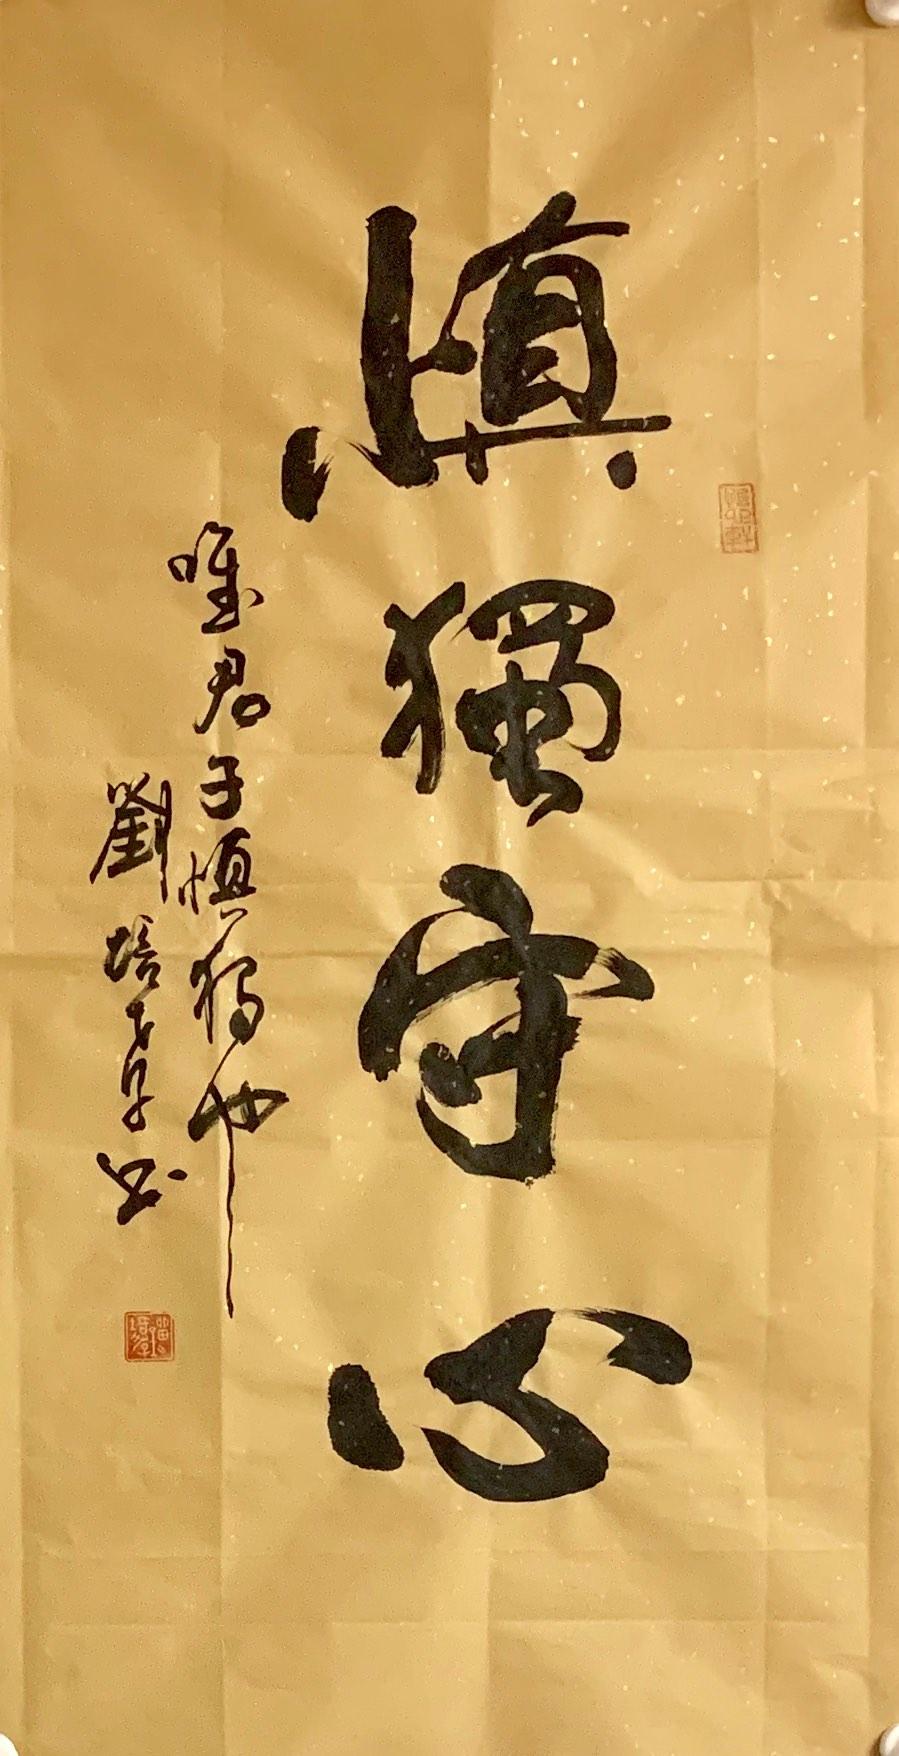 慎獨守心
唯君子慎獨也
劉培孝書